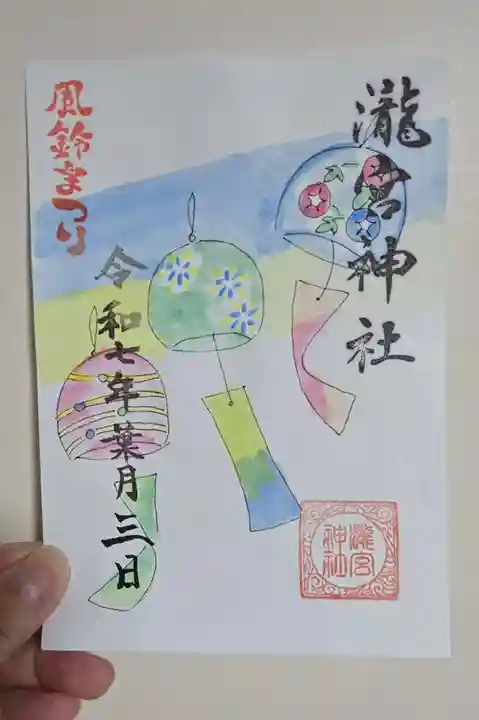 瀧宮神社
風鈴まつり
令和七年葉月三日
瀧宮
神社